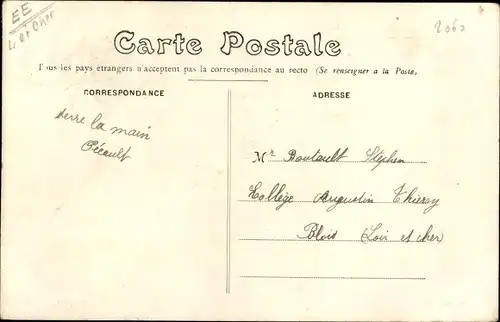 EE
L et Cher
2060
Carte Postale
Tous les pays etrangers n'acceptent pas la correspondance au recto (Se renseigner a la Poste,
CORRESPONDANCE
ADRESSE
serre la main
Mr Boutault Stéphen
Collège Augustin Thierry
Blois (Loir et cher)